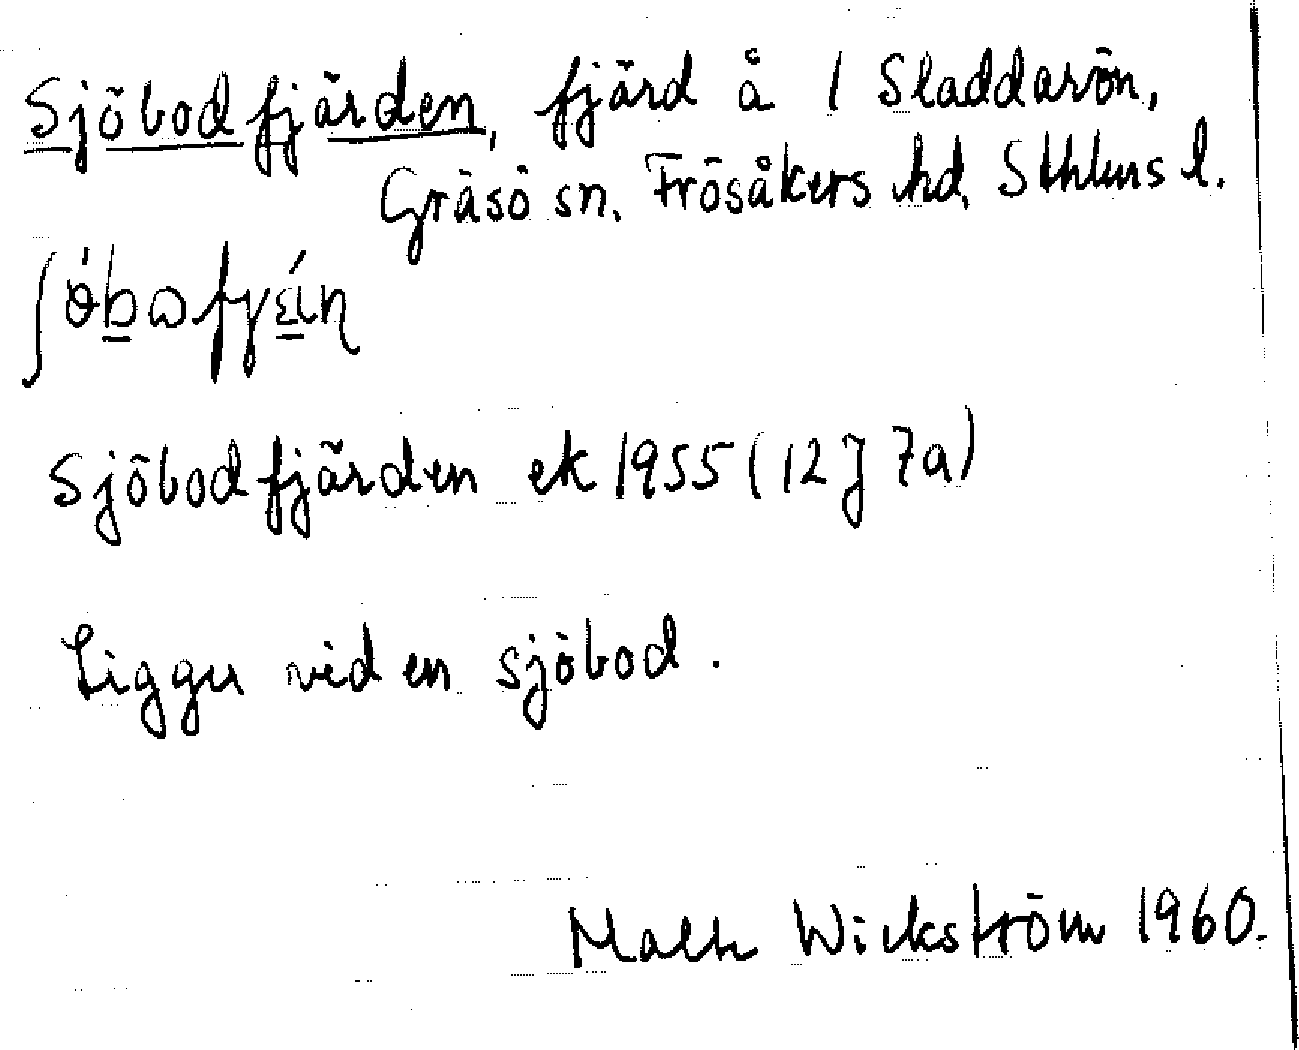 Sjöbodfjärden, fjärd å 1 Sladdarön,
Gräsö sn. Frösåkers hd, Sthlms l.
Sjöbodfjärden ek 1955 (12J 7a)
Ligger vid en sjöbod.
Wickström 1960.